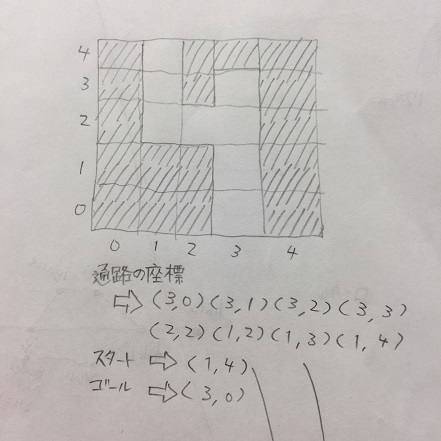 4
3
2
1
0
0 1 2 3 4
通路の座標
⇨ (3,0)(3,1)(3,2)(3,3)
(2,2)(1,2)(1,3)(1,4)
スタート ⇨ (1,4)
ゴール ⇨ (3,0)